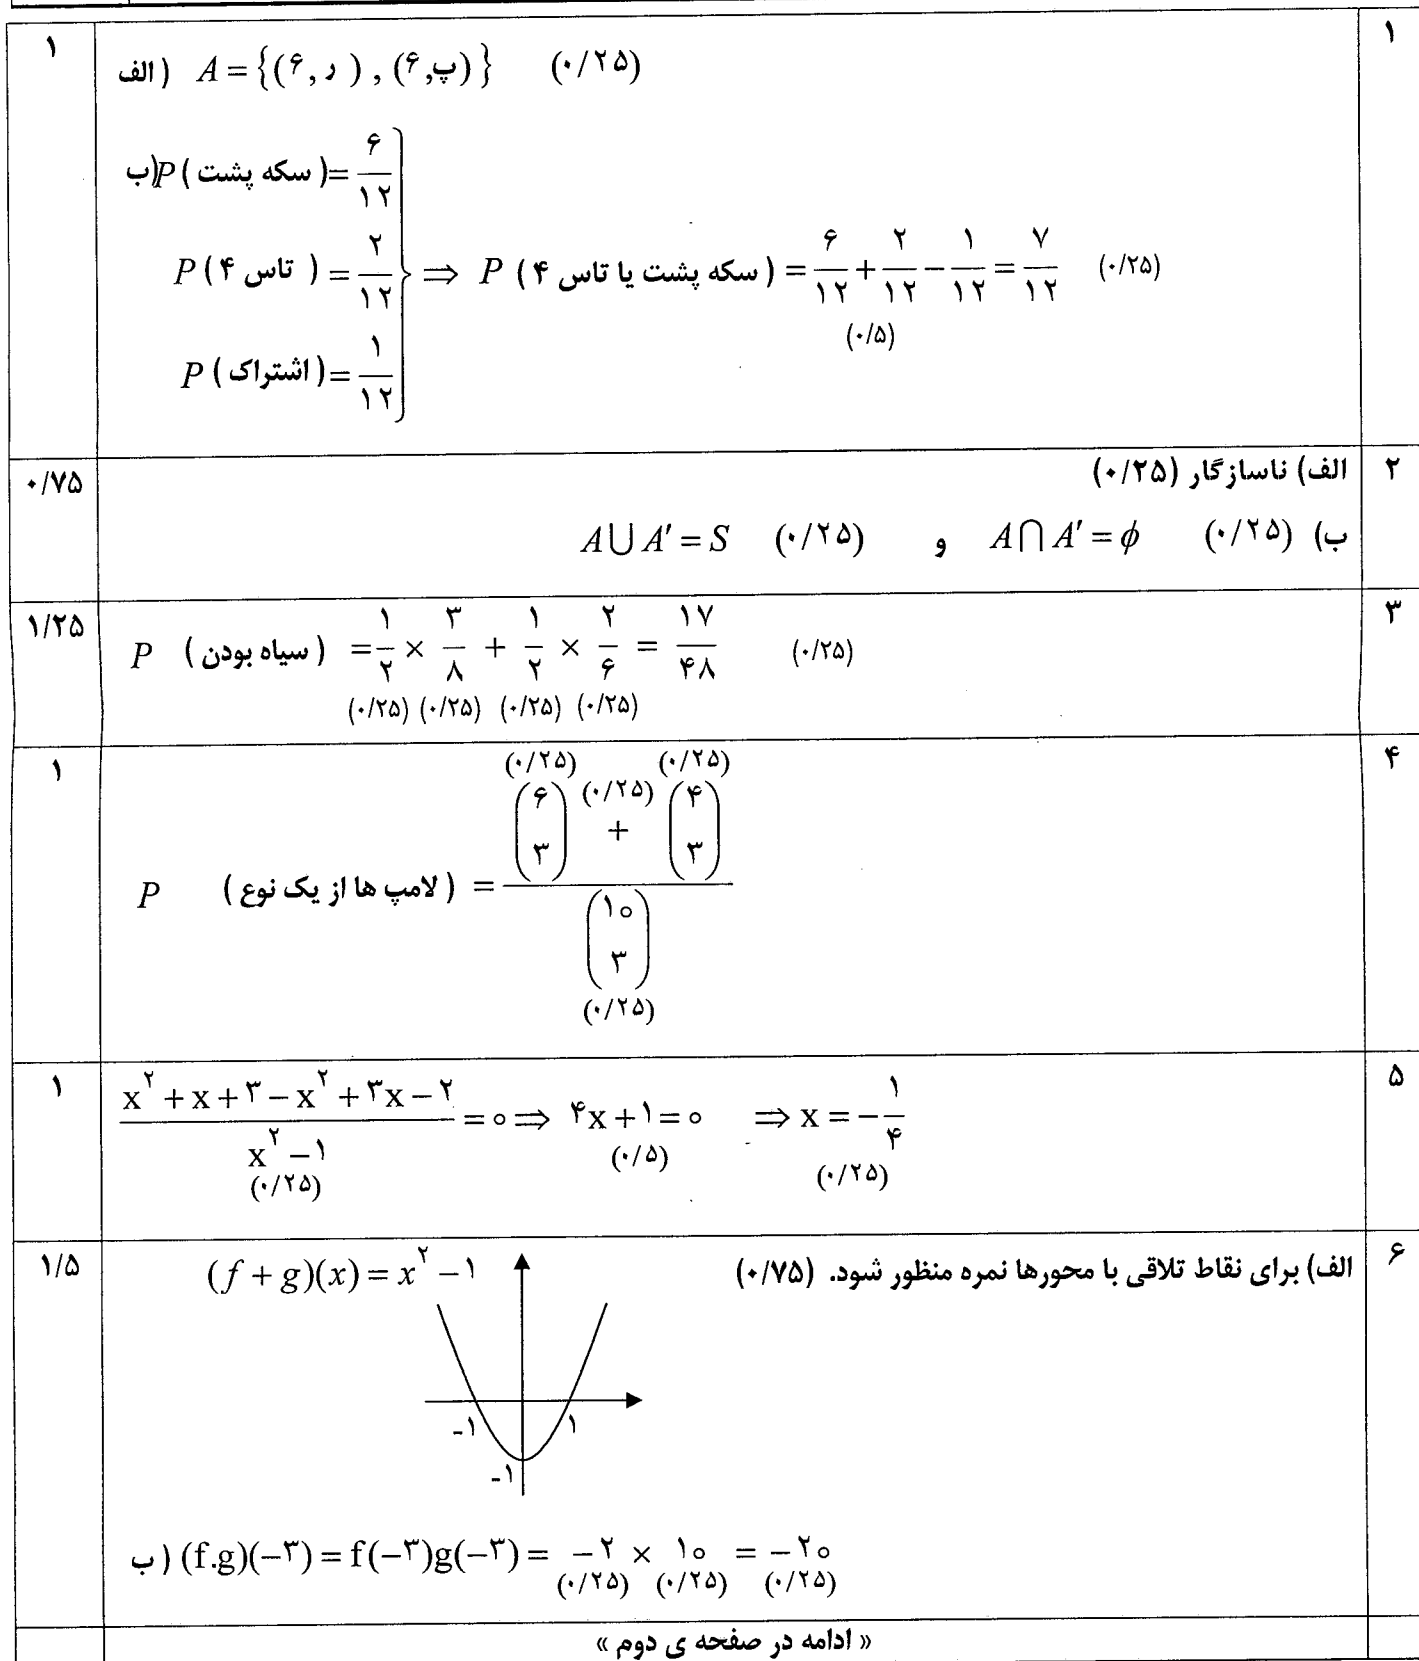 ۱
الف) A = {(۶, ر), (۶,پ)} (۰/۲۵)
۱
ب) P(سکه پشت) = ۶/۱۲
P(تاس ۴) = ۲/۱۲ ⇒ P(سکه پشت یا تاس ۴) = ۶/۱۲ + ۲/۱۲ − ۱/۱۲ = ۷/۱۲ (۰/۲۵)
(۰/۵)
P(اشتراک) = ۱/۱۲
۲
الف) ناسازگار (۰/۲۵)
۰/۷۵
ب) (۰/۲۵) A∩A′=ϕ و (۰/۲۵) A∪A′=S
۳
P (سیاه بودن) = ۱/۲ × ۳/۸ + ۱/۲ × ۲/۶ = ۱۷/۴۸ (۰/۲۵)
۱/۲۵
(۰/۲۵) (۰/۲۵) (۰/۲۵) (۰/۲۵)
۴
۱
(۰/۲۵) (۰/۲۵) (۰/۲۵)
P (لامپ ها از یک نوع) = ((۶ ۳) + (۴ ۳)) / (۱۰ ۳)
(۰/۲۵)
۵
۱
(x^۲ + x + ۳ − x^۲ + ۳x − ۲)/(x^۲ − ۱) = ۰ ⇒ ۴x + ۱ = ۰ ⇒ x = −۱/۴
(۰/۲۵) (۰/۵) (۰/۲۵)
۶
الف) برای نقاط تلاقی با محورها نمره منظور شود. (۰/۷۵)
(f + g)(x) = x^۲ − ۱
۱/۵
-۱ ۱
-۱
ب) (f.g)(−۳) = f(−۳)g(−۳) = −۲ × ۱۰ = −۲۰
(۰/۲۵) (۰/۲۵) (۰/۲۵)
« ادامه در صفحه ی دوم »